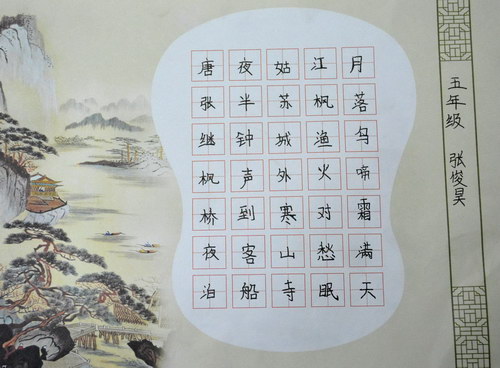 月落乌啼霜满天
江枫渔火对愁眠
姑苏城外寒山寺
夜半钟声到客船
唐张继枫桥夜泊
五年级 张俊昊